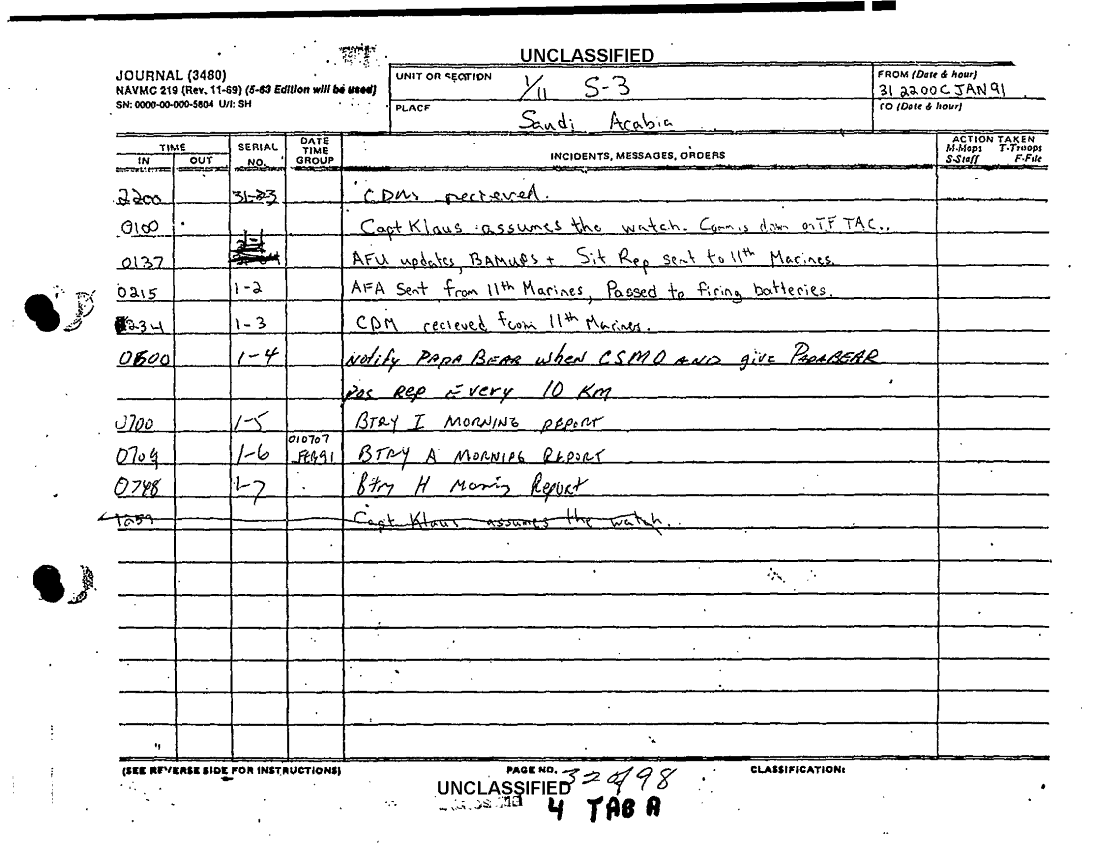 UNCLASSIFIED
JOURNAL (3480)
NAVMC 219 (Rev. 11-69) (5-63 Edition will be used)
SN: 0000-00-000-5804 U/I: SH
UNIT OR SECTION
1/11 S-3
PLACE
Saudi Arabia
FROM (Date & hour)
31 2200C JAN 91
TO (Date & hour)
TIME
IN OUT
SERIAL NO.
DATE TIME GROUP
INCIDENTS, MESSAGES, ORDERS
ACTION TAKEN
M-Maps T-Troops
S-Staff F-File
2200 31-23 CDMs recieved.
0100 Capt Klaus assumes the watch. Comm is down on TF TAC.
0137 1-1 AFU updates, BAMUPS + Sit Rep sent to 11th Marines.
0215 1-2 AFA Sent from 11th Marines, Passed to firing batteries.
0234 1-3 CDM recieved from 11th Marines.
0600 1-4 Notify PAPA BEAR when CSMO AND give PAPABEAR
Pos Rep Every 10 KM
0700 1-5 BTRY I MORNING REPORT
0709 1-6 010707 FEB91 BTRY A MORNING REPORT
0748 1-7 Btry H Morning Report
1259 Capt Klaus assumes the watch.
(SEE REVERSE SIDE FOR INSTRUCTIONS)
PAGE NO. 32 of 98
CLASSIFICATION:
UNCLASSIFIED
4 TAB A